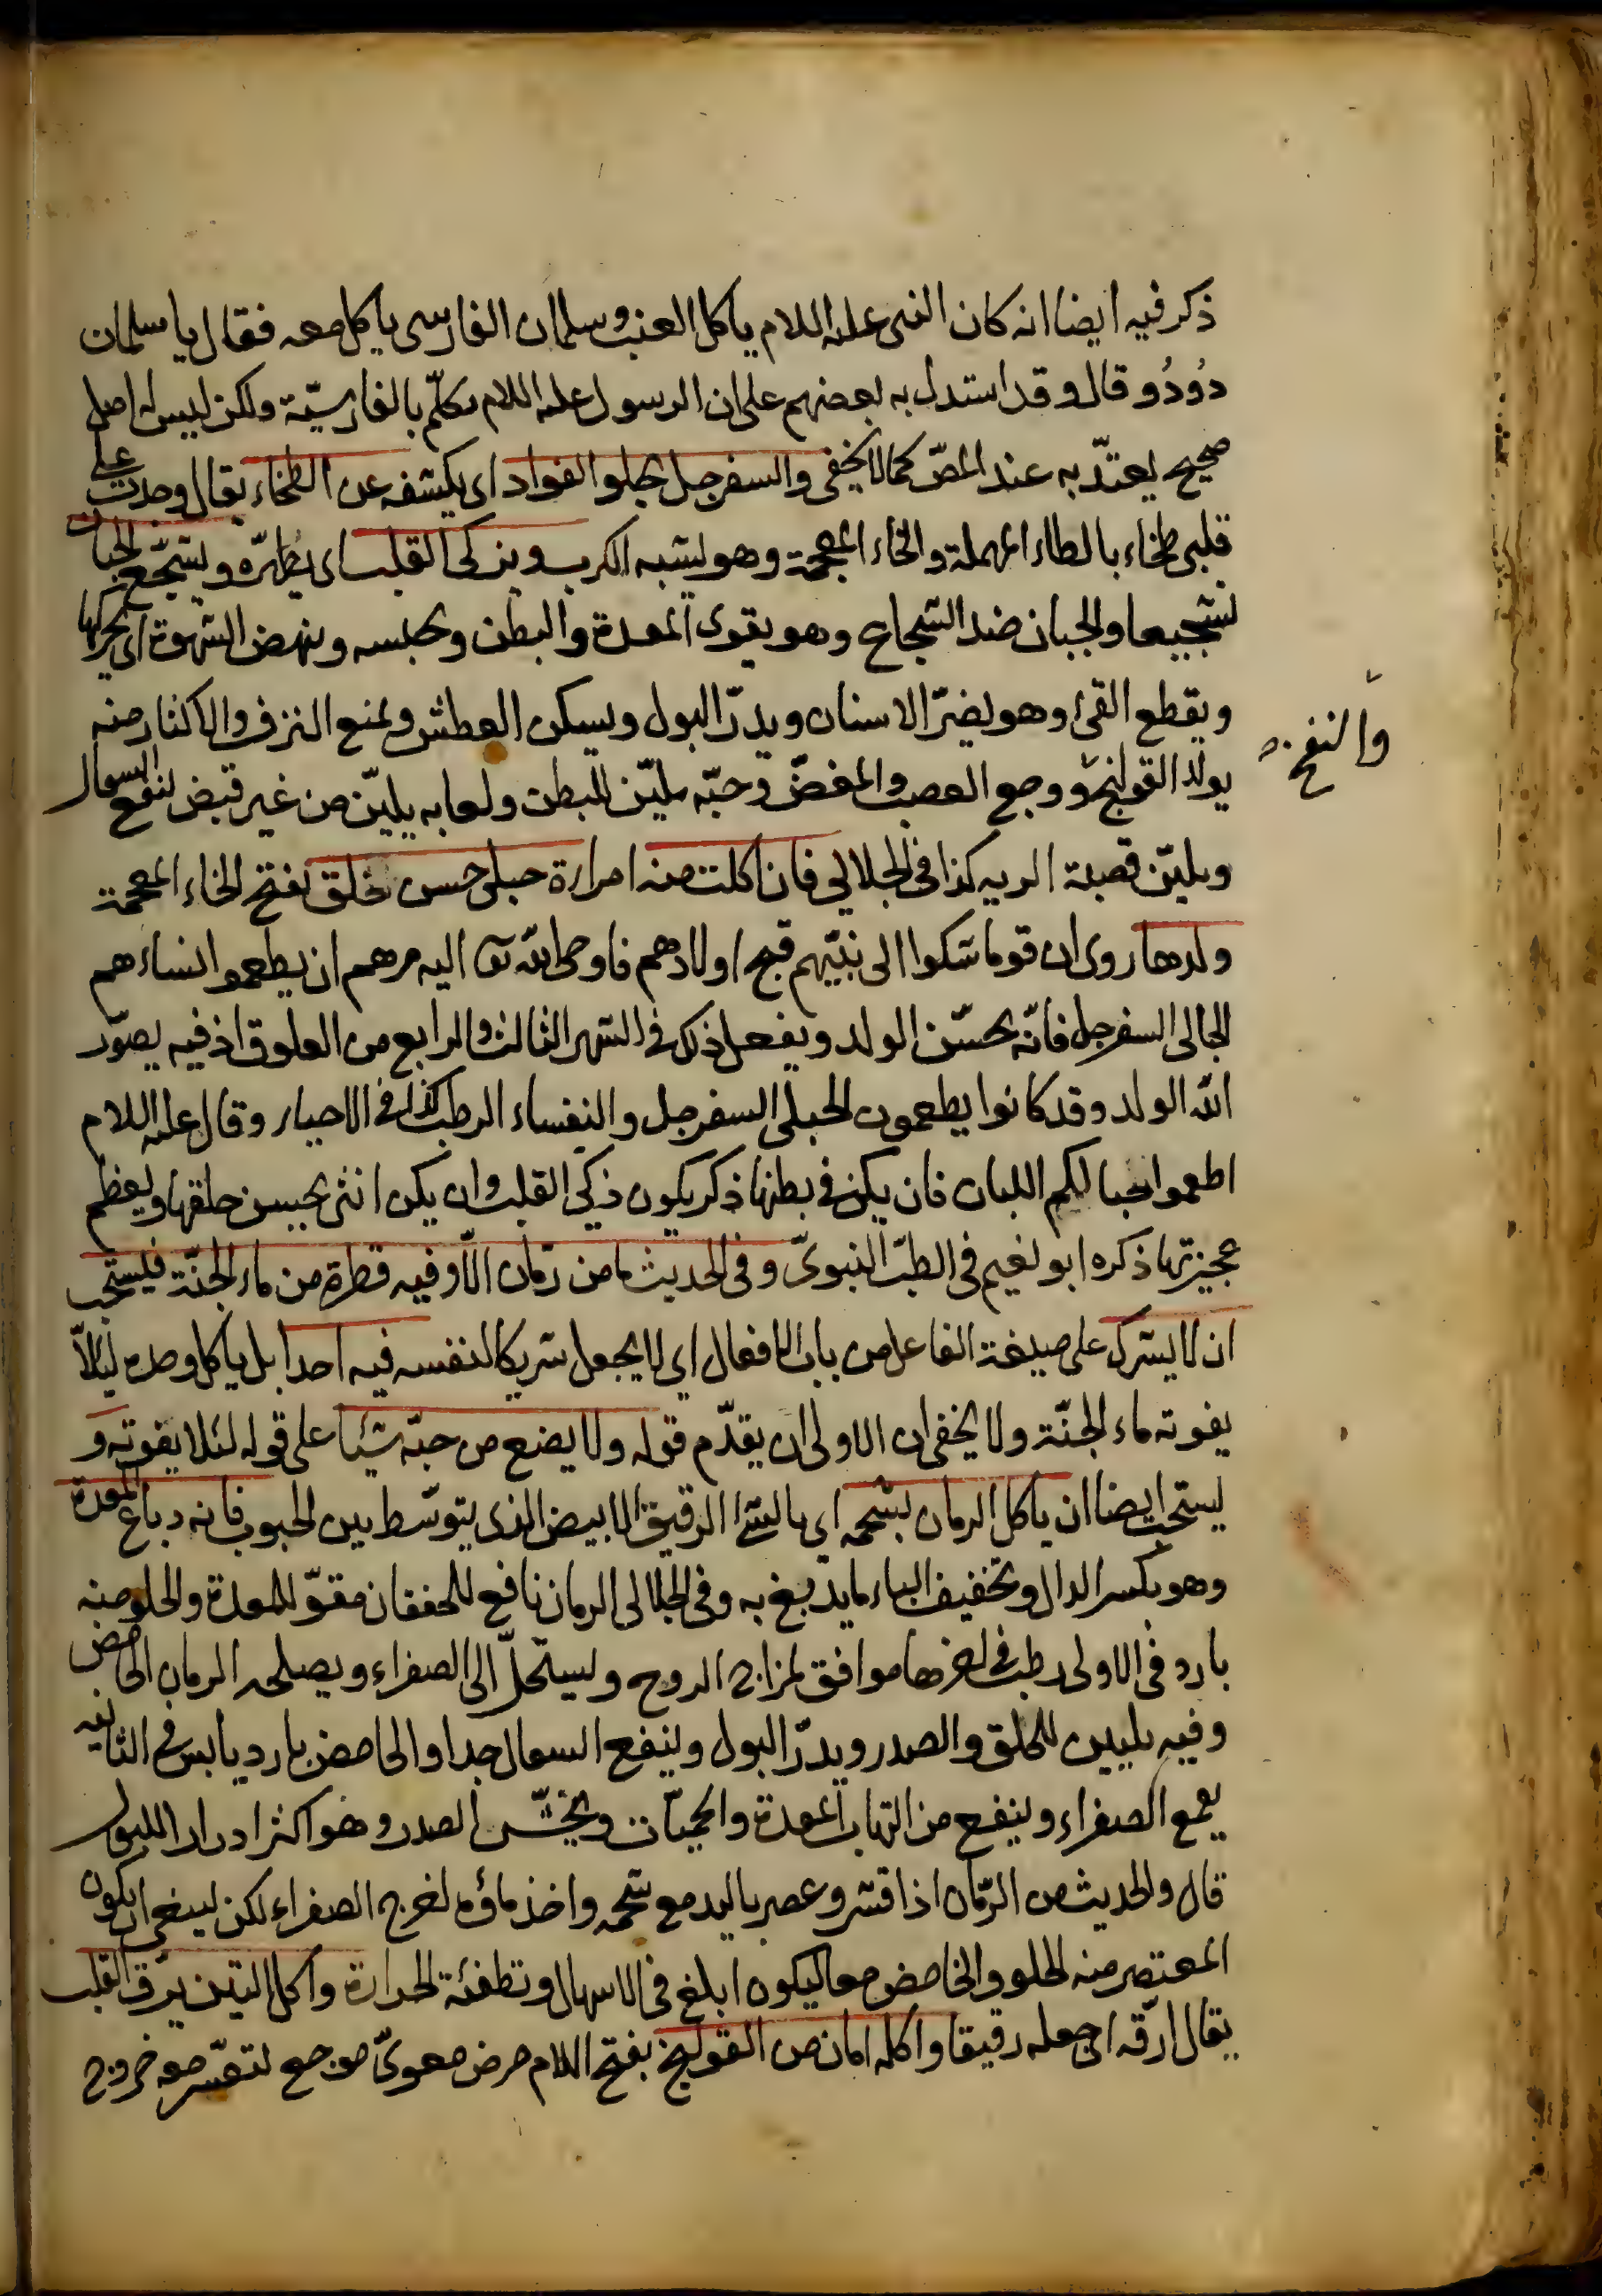 ذكر فيه ايضا انه كان النبى عليه السلام ياكل العنب وسلمان الفارسى ياكل معه فقال يا سلمان
دُودُو قال وقد استدل به بعضهم على ان الرسول عليه السلام تكلّم بالفارسيّة ولكن ليس له اصل
صحيح يعتدّ به عند المصّ كما لا يخفى والسفرجل يجلو الفواد اى يكشفه عن الطخاء يقال وجدت على
قلبى طخاء بالطاء المهملة والخاء المعجمة وهو يشبه الكرب ويزكى القلب اى يطهّره ويشجّع الجبان
تشجيعا والجبان ضد الشجاع وهو يقوى المعدة والبطن ويحبسه وينهض الشهوة اى يحركها
ويقطع القئ وهو يضرّ الاسنان ويدرّ البول ويسكن العطش ويمنع النزف والاكثار منه
والنفخ
يولد القولنج ووجع العصب والمغصّ وحبّه يليّن البطن ولعابه يليّن من غير قبض لنفع السعال
ويليّن قصبة الريه كذا فى الجلالى فان اكلت منه امراءة حبلى حسن خلق بفتح الخاء المعجمة
ولدها روى ان قوما شكوا الى نبيّهم قبح اولادهم فاوحى الله تعا اليه مرهم ان يطعموا نساءهم
الحبالى السفرجل فانّه يحسّن الولد ويفعل ذلك فى الشهر الثالث والرابع من العلوق اذ فيه يصوّر
الله الولد وقد كانوا يطعمون الحبلى السفرجل والنفساء الرطب كذا فى الاحياء وقال عليه السلام
اطعموا حبالكم اللبان فان يكن فى بطنها ذكر يكون ذكى القلب وان يكن انثى يحسن خلقها ويعظم
عجيزتها ذكره ابو نعيم فى الطبّ النبوىّ وفى الحديث ما من رمّان الّا وفيه قطرة من ماء الجنّة فيستحب
ان لا يشرك على صيغة الفاعل من باب الافعال اى لا يجعل شريكا لنفسه فيه احدا بل ياكل وحده ليلّا
يفوته ماء الجنّة ولا يخفى ان الاولى ان يقدّم قوله ولا يضع من حبّه شيئا على قوله لئلا يفوته و
يستحب ايضا ان ياكل الرمان بشحمه اى بالشئ الرقيق الابيض الذى يتوسّط بين الحبوب فانه دباغ المعدة
وهو بكسر الدال وتخفيف الباء ما يدبغ به وفى الجلالى الرمان نافع للخفقان مقوّ للمعدة والحلو منه
بارد فى الاولى رطب فى اخرها موافق لمزاج الروح ويستحلّ الى الصفراء ويصلحه الرمان الحامض
وفيه تليين للحلق والصدر ويدرّ البول وينفع السعال جدا والحامض بارد يابس فى الثانيه
يقمع الصفراء وينفع من التهاب المعدة والحميّات ويخشّن الصدر وهو اكثر ادرار اللبول
قال والحديث من الرّمان اذا قشر وعصر باليد مع شحمه واخذ ماؤه لخرج الصفراء لكن ينبغى ان يكون
المعتصر منه الحلو والحامض معا ليكون ابلغ فى الاسهال وتطفئة الحرارة واكل التين يرق القلب
يقال ارقّه اى جعله رقيقا واكله امان من القولنج بفتح اللام مرض معوىّ موجع لتعسّر معه خروج